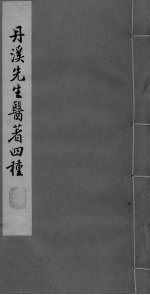 丹溪先生醫著四種